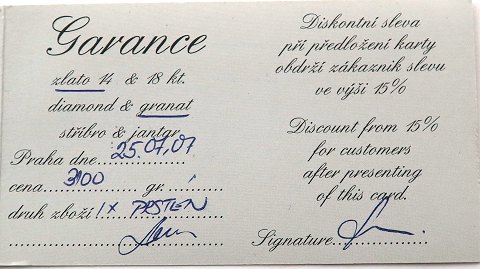 Garance
zlato 14 & 18 kt.
diamond & granat
stříbro & jantar
Praha dne 25.07.07
cena 3100 gr.
druh zboží 1x PRSTEN
Diskontní sleva
při předložení karty
obdrží zákazník slevu
ve výši 15%
Discount from 15%
for customers
after presenting
of this card.
Signature